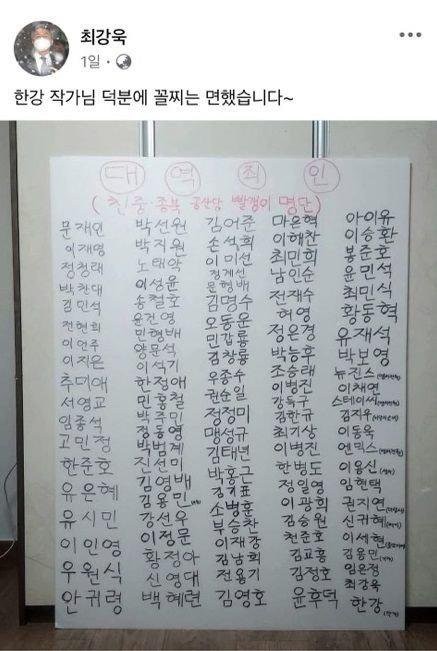 최강욱
1일
한강 작가님 덕분에 꼴찌는 면했습니다~
대 역 죄 인
(친중·종북 공산당 빨갱이 명단)
문재인
이재명
정청래
박찬대
김민석
전현희
이언주
이지은
추미애
서영교
임종석
고민정
한준호
유은혜
유시민
이인영
우원식
안귀령
박선원
박지원
노태악
이성윤
송철호
윤건영
민형배
양문석
이석기
한정애
민홍철
박주민
정동영
박범계
진선미
김영배
김용민
강선우
이정문
황정아
신영대
백혜련
김어준
손석희
이미선
정계선
문형배
김명수
오동운
민갑룡
김창룡
우종수
권순일
정정미
맹성규
김태년
박홍근
김기표
소병훈
부승찬
이재강
김남희
전용기
김영호
마은혁
이해찬
최민희
남인순
전재수
허영
정은경
박능후
조승래
이병진
강득구
김한규
최기상
이병진
한병도
정일영
이광희
김승원
천준호
김교흥
김정호
윤후덕
아이유
이승환
봉준호
윤민석
최민식
황동혁
유재석
박보영
뉴진스
이채연
스테이씨
김지우
이동욱
엔믹스
이용신
임현택
권지연
신귀혜
이세현
김용민
임은정
최강욱
한강